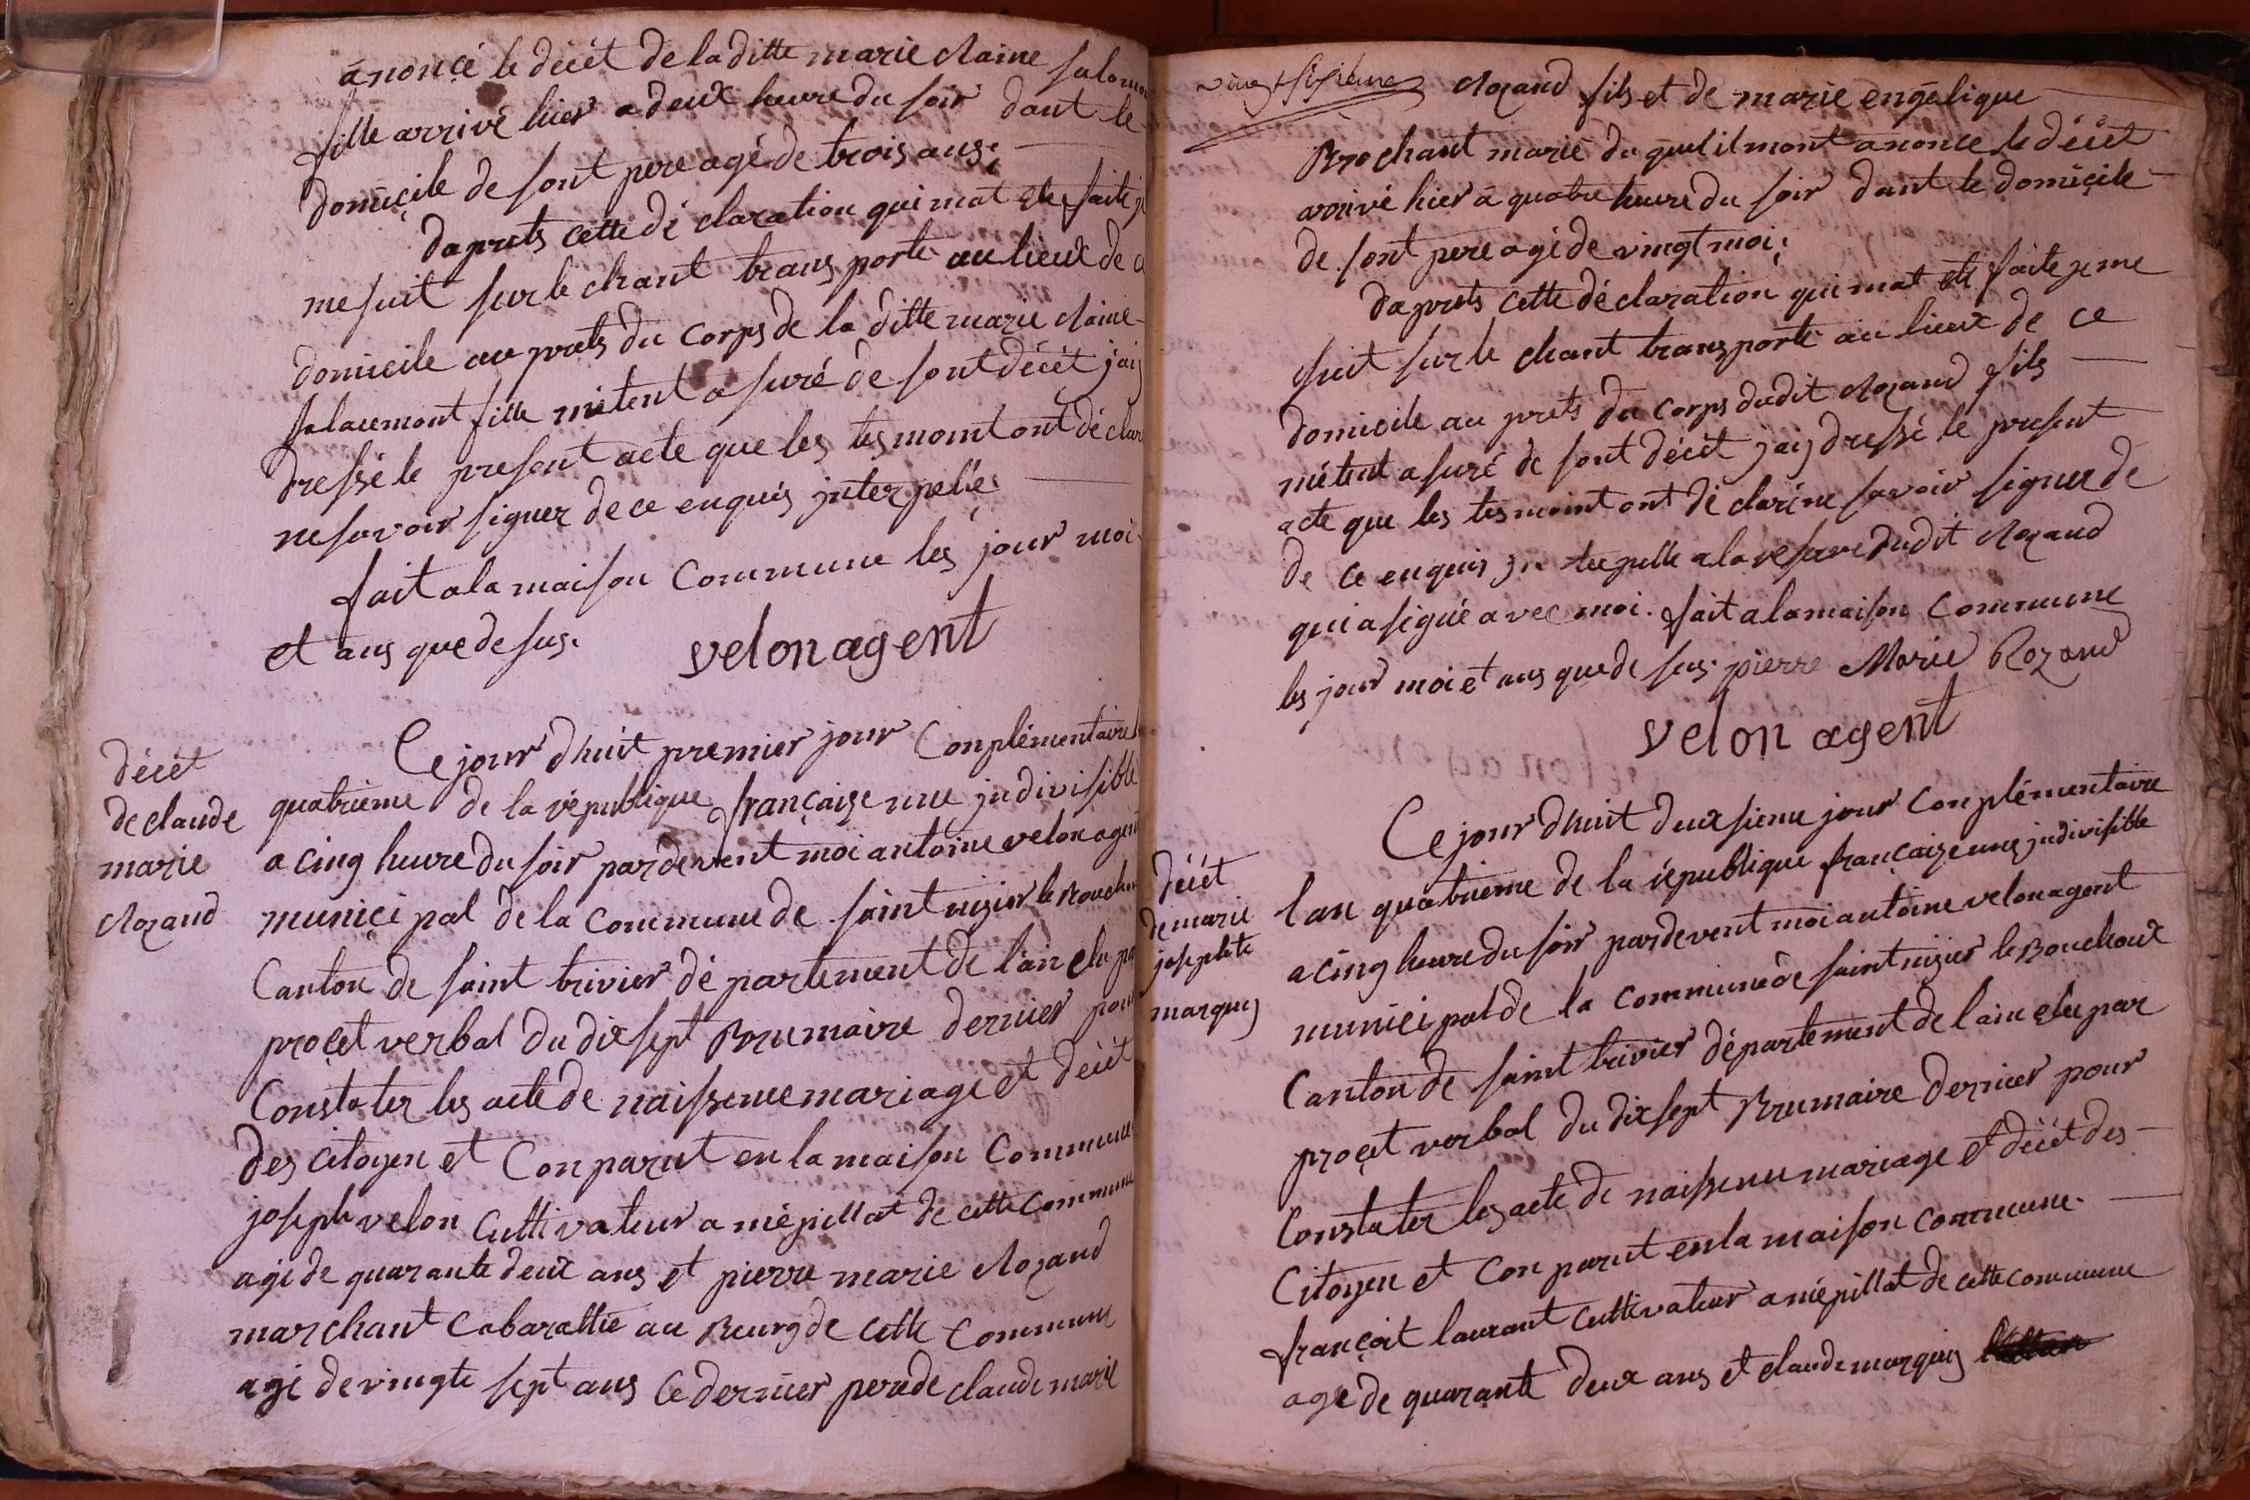 anoncé le décét de la ditte marie claine salomon
fille arrivé hier a deux heure du soir dant le
domiçile de sont pere agé de trois ans;
daprets cette dé claration qui mat ete faite je
me suit sur le chant trans porté au lieux de ce
domicile au prets du corps de la ditte marie claine
salaumont fille métent a suré de sont décét jaij
dressé le present acte que les tesmoint ont déclaré
ne savoir signer de ce enquis interpellé
fait a la maison commune les jour moi
et ans que de sus.
velon agent
décét
de claude
marie
Rozand
Ce jour dhuit premier jour Conplémentaire
quatrieme de la république françaize une indivisible
a cinq heure du soir pardevent moi antoine velon agent
muniçi pal de la commune de saint nizier le Bouchoux
Canton de saint trivier dé partement de lain elu par
proçet verbal du dix sept Brumaire dernier pour
Constater les acte de naissence mariage et décét
des citoyen et Conparut en la maison Commune
joseph velon Cultivateur a mépillat de cette commune
agé de quarante deux ans et pierre marie Rozand
marchant Cabarattié au Bourg de cette Commune
agé de vingte sept ans Ce dernier pere de claude marie
vingt sixieme
Rozand fils et de marie engélique
Brochant marié du quel il mont anoncé le décét
arrivé hier a quatre heure du soir dant le domiçile
de sont pere agé de vingt moi;
daprets cette déclaration qui mat eté faite je me
suit sur le chant trans porté au lieux de ce
domicile au prets du corps dudit Rozand fils
métent a suré de sont décét jaij dressé le present
acte que les tesmoint ont dé claré ne savoir signer de
de ce enquis in terpellé a la reserve dudit Rozand
qui a signé avec moi. fait a la maison Commune
les jour moi et ans que de sus. pierre Marie Rozand
velon agent
décét
de marie
josephte
marquis
Ce jour dhuit deuxsieme jour Conplémentaire
lan quatrieme de la république françaize une indivisible
a cinq heure du soir pardevent moi antoine velon agent
muniçi pal de la commune de saint nizier le Bouchoux
Canton de saint trivier département de lain elu par
proçet verbal du dix sept Brumaire dernier pour
Constater les acte de naissence mariage et décét des
Citoyen et Con parut en la maison commune.
françoit laurant cultivateur a mépillat de cette commune
agé de quarante deux ans et claude marquis